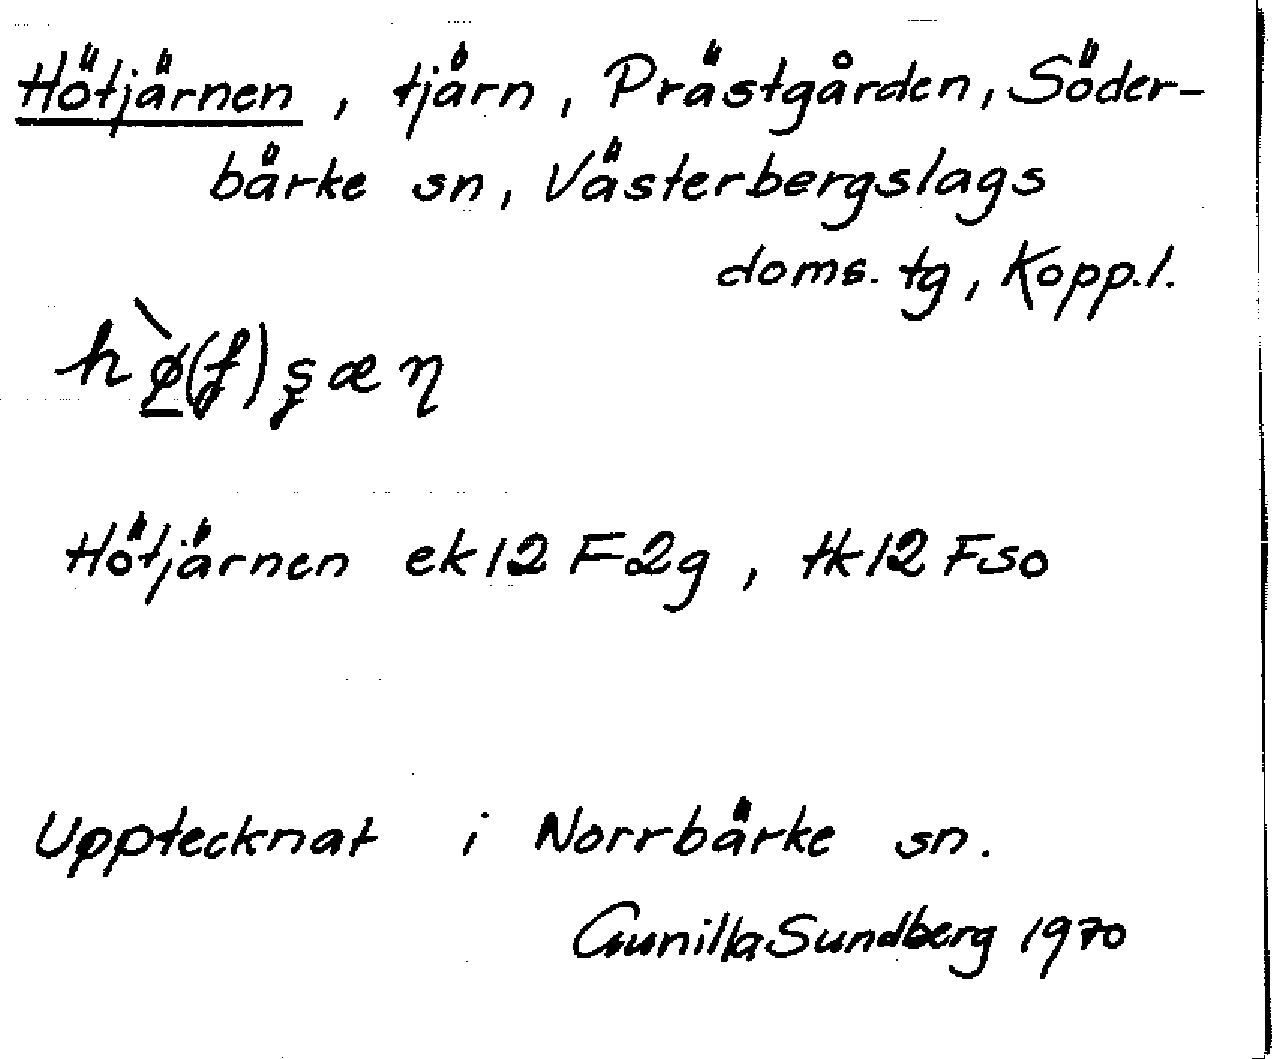 Hötjärnen, tjärn, Prästgården, Söder-
bärke sn, Västerbergslags
doms. tg, Kopp.l.
Hötjärnen ek 12 F 2g, tk 12 F SO
Upptecknat i Norrbärke sn.
Gunilla Sundberg 1970